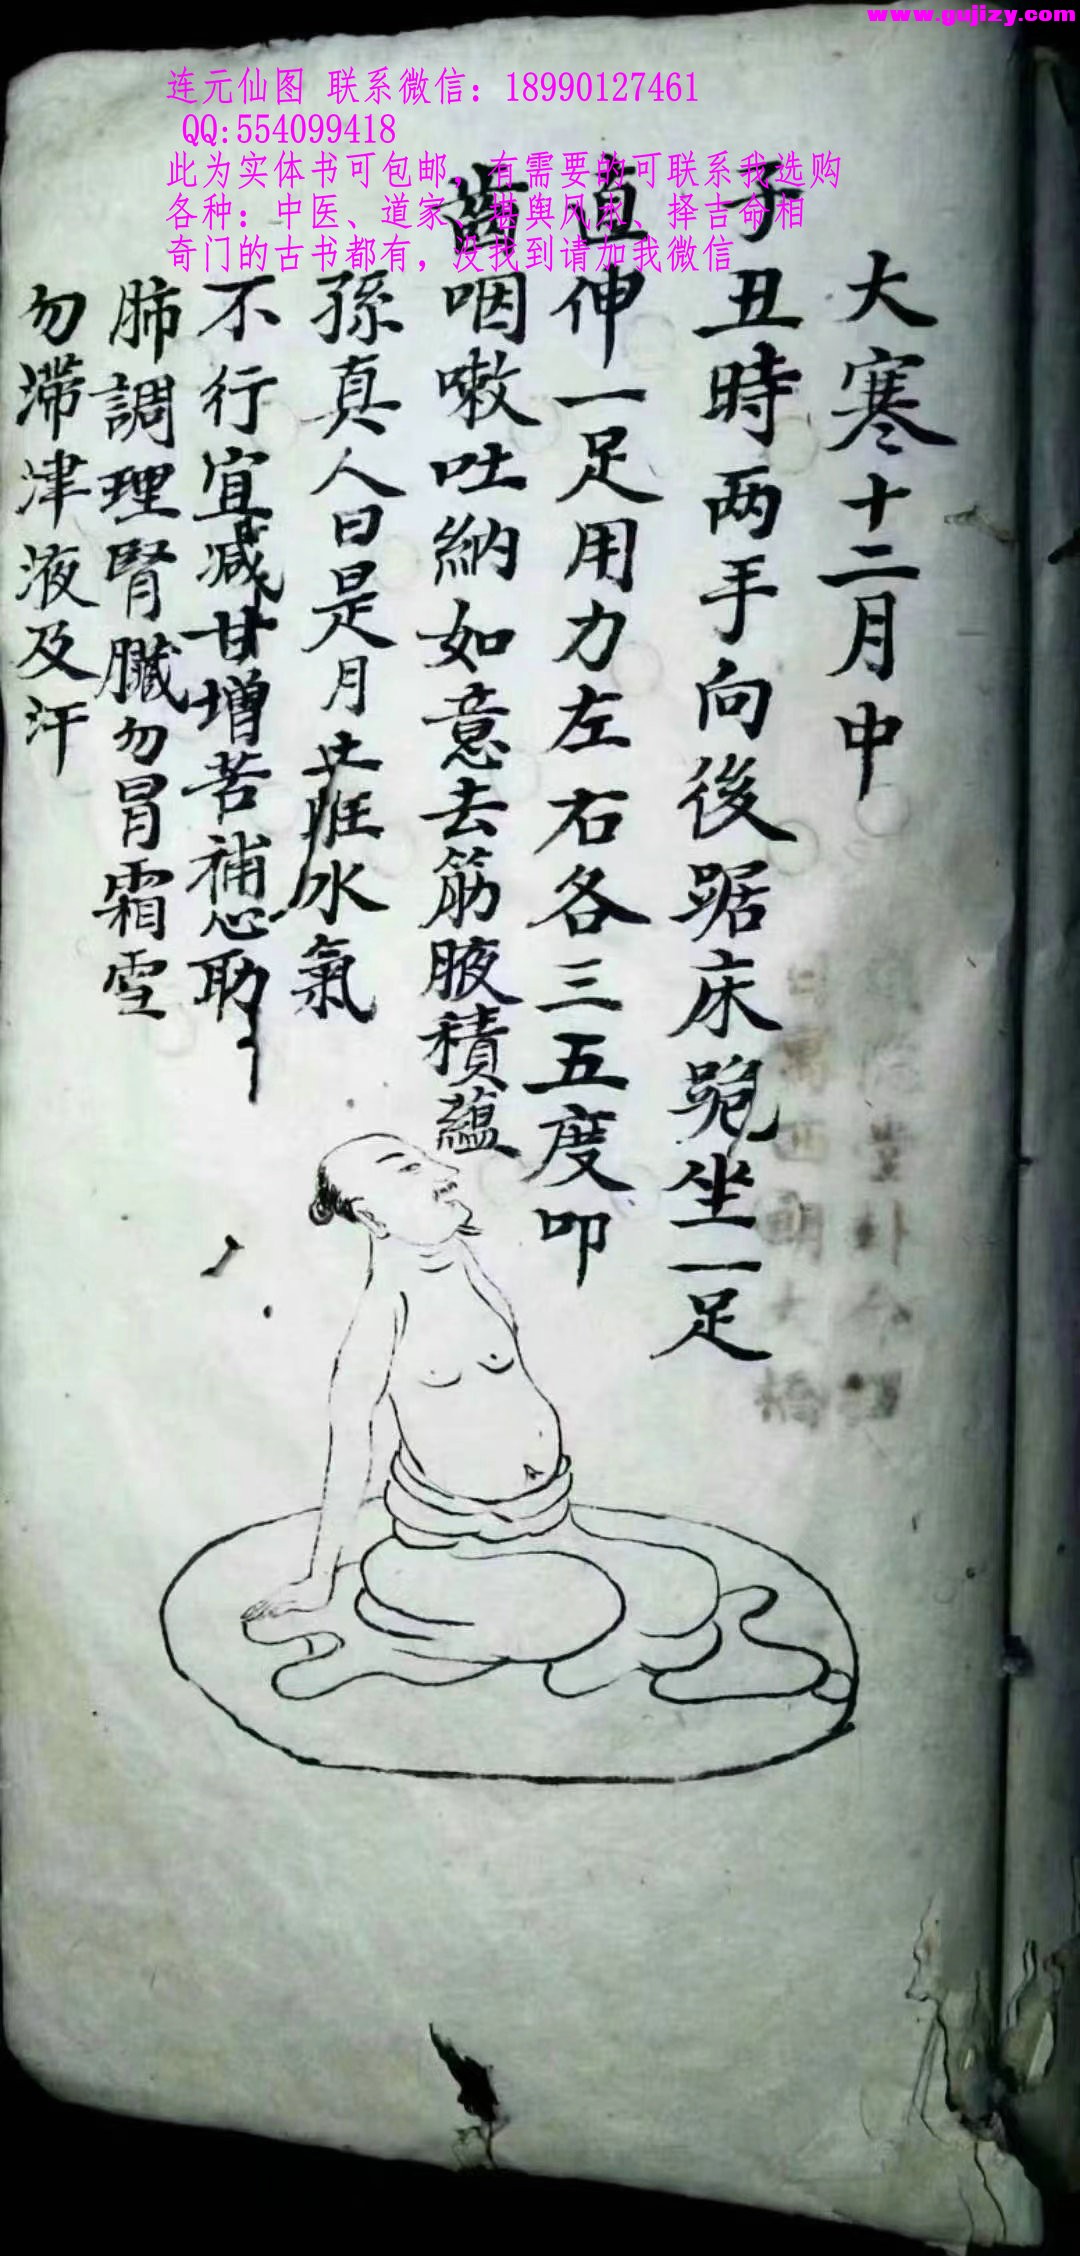 www.gujizy.com
连元仙图 联系微信：18990127461
QQ:554099418
此为实体书可包邮，有需要的可联系我选购
各种：中医、道家、堪舆风水、择吉命相
奇门的古书都有，没找到请加我微信
大寒十二月中
子丑時两手向後踞床跪坐一足
直伸一足用力左右各三五度叩
齒咽嗽吐納如意去筋腋積蘊
孫真人曰是月土旺水氣
不行宜减甘增苦補心助
肺調理腎臟勿冒霜雪
勿滞津液及汗